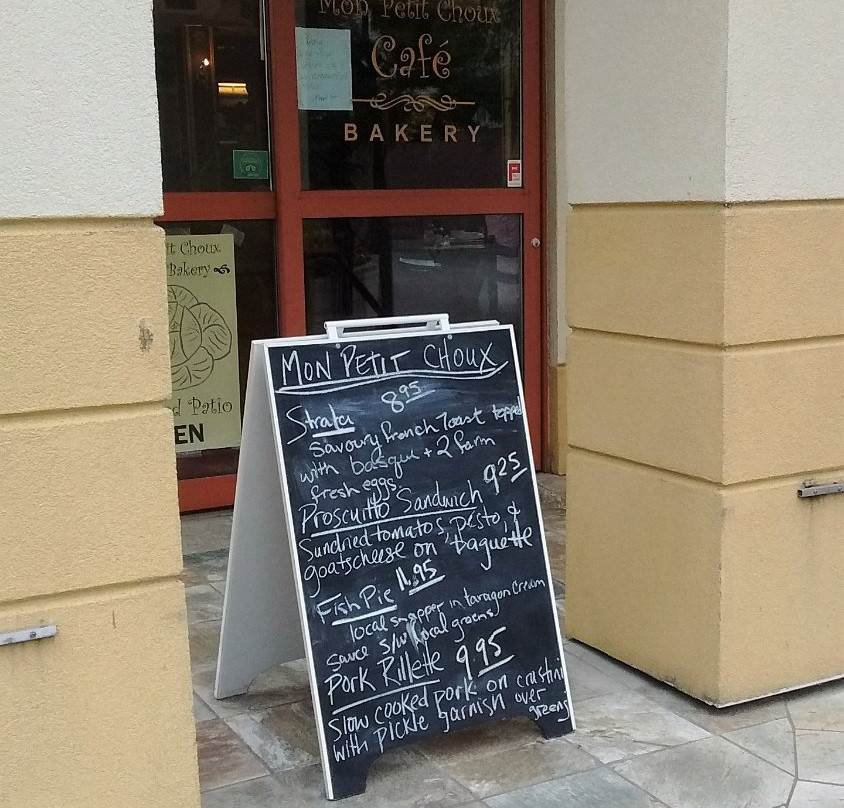 Mon Petit Choux
Café
BAKERY
it Choux
Bakery
d Patio
EN
MON PETIT CHOUX
Strata 8.95
Savoury French Toast topped
with basque + 2 farm
fresh eggs
9.25
Proscuitto Sandwich
Sundried tomatos, pesto, &
goatscheese on baguette
11.95
Fish Pie
local snapper in taragon cream
sauce s/w local greens
Pork Rillette 9.95
Slow cooked pork on crustini
with pickle garnish over
greens